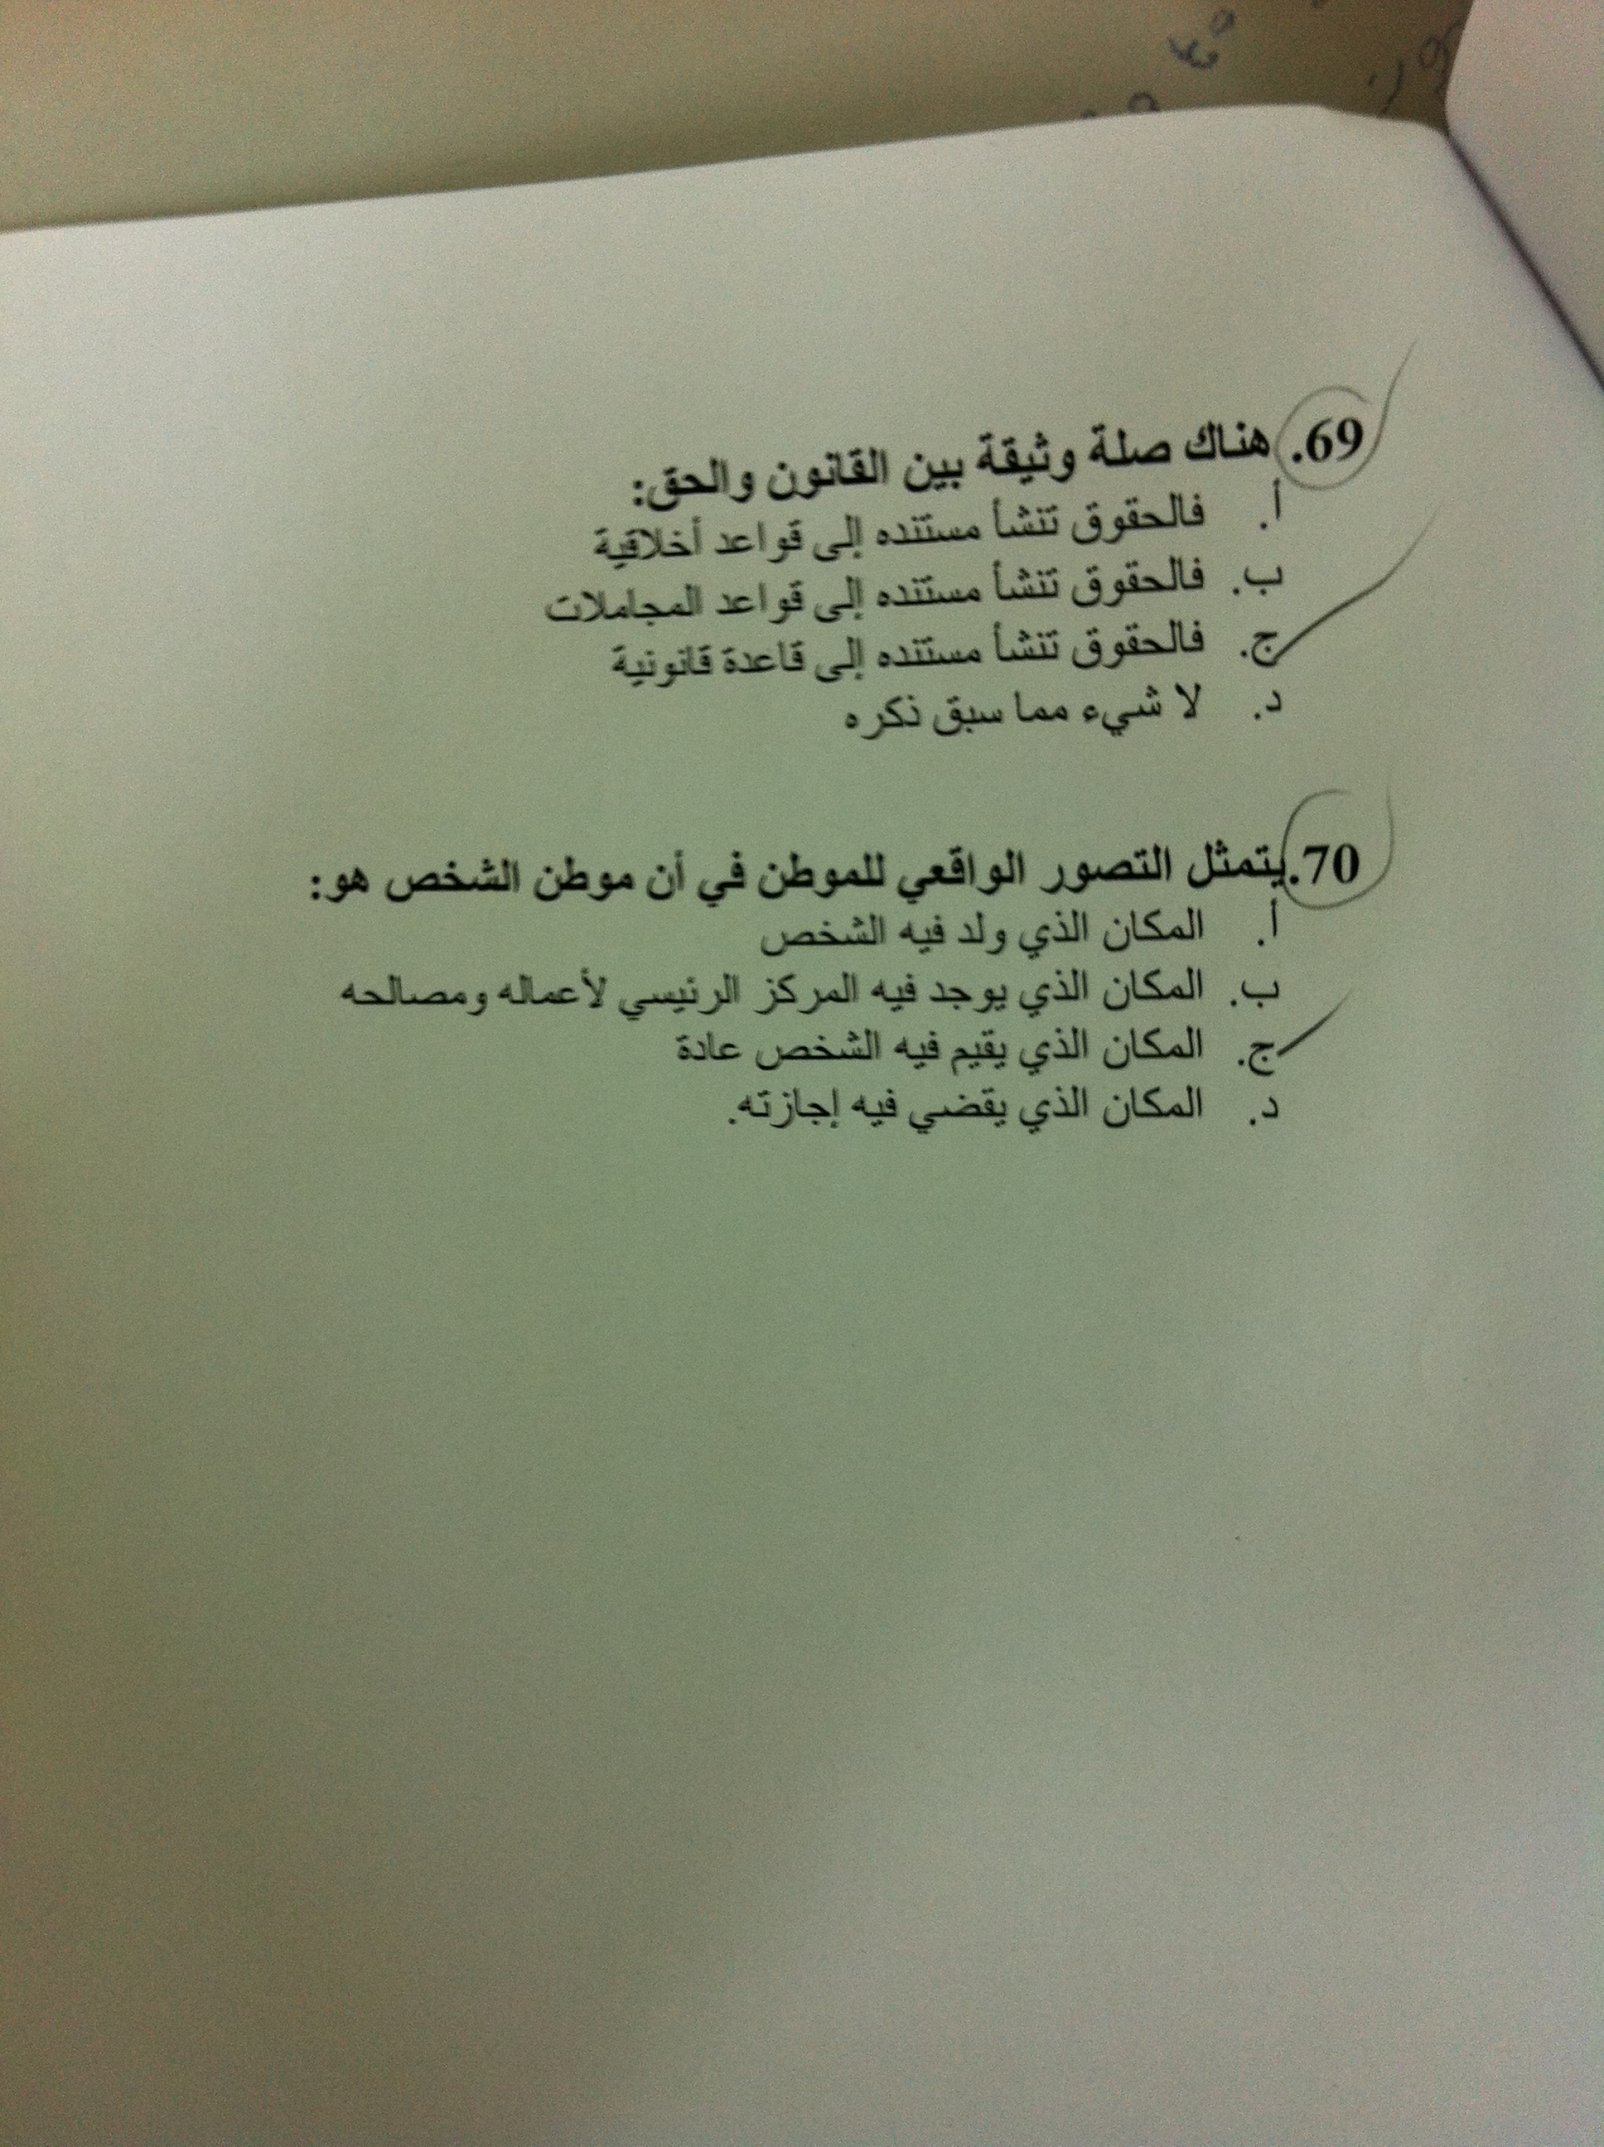 69. هناك صلة وثيقة بين القانون والحق:
أ. فالحقوق تنشأ مستنده إلى قواعد أخلاقية
ب. فالحقوق تنشأ مستنده إلى قواعد المجاملات
ج. فالحقوق تنشأ مستنده إلى قاعدة قانونية
د. لا شيء مما سبق ذكره
70. يتمثل التصور الواقعي للموطن في أن موطن الشخص هو:
أ. المكان الذي ولد فيه الشخص
ب. المكان الذي يوجد فيه المركز الرئيسي لأعماله ومصالحه
ج. المكان الذي يقيم فيه الشخص عادة
د. المكان الذي يقضي فيه إجازته.